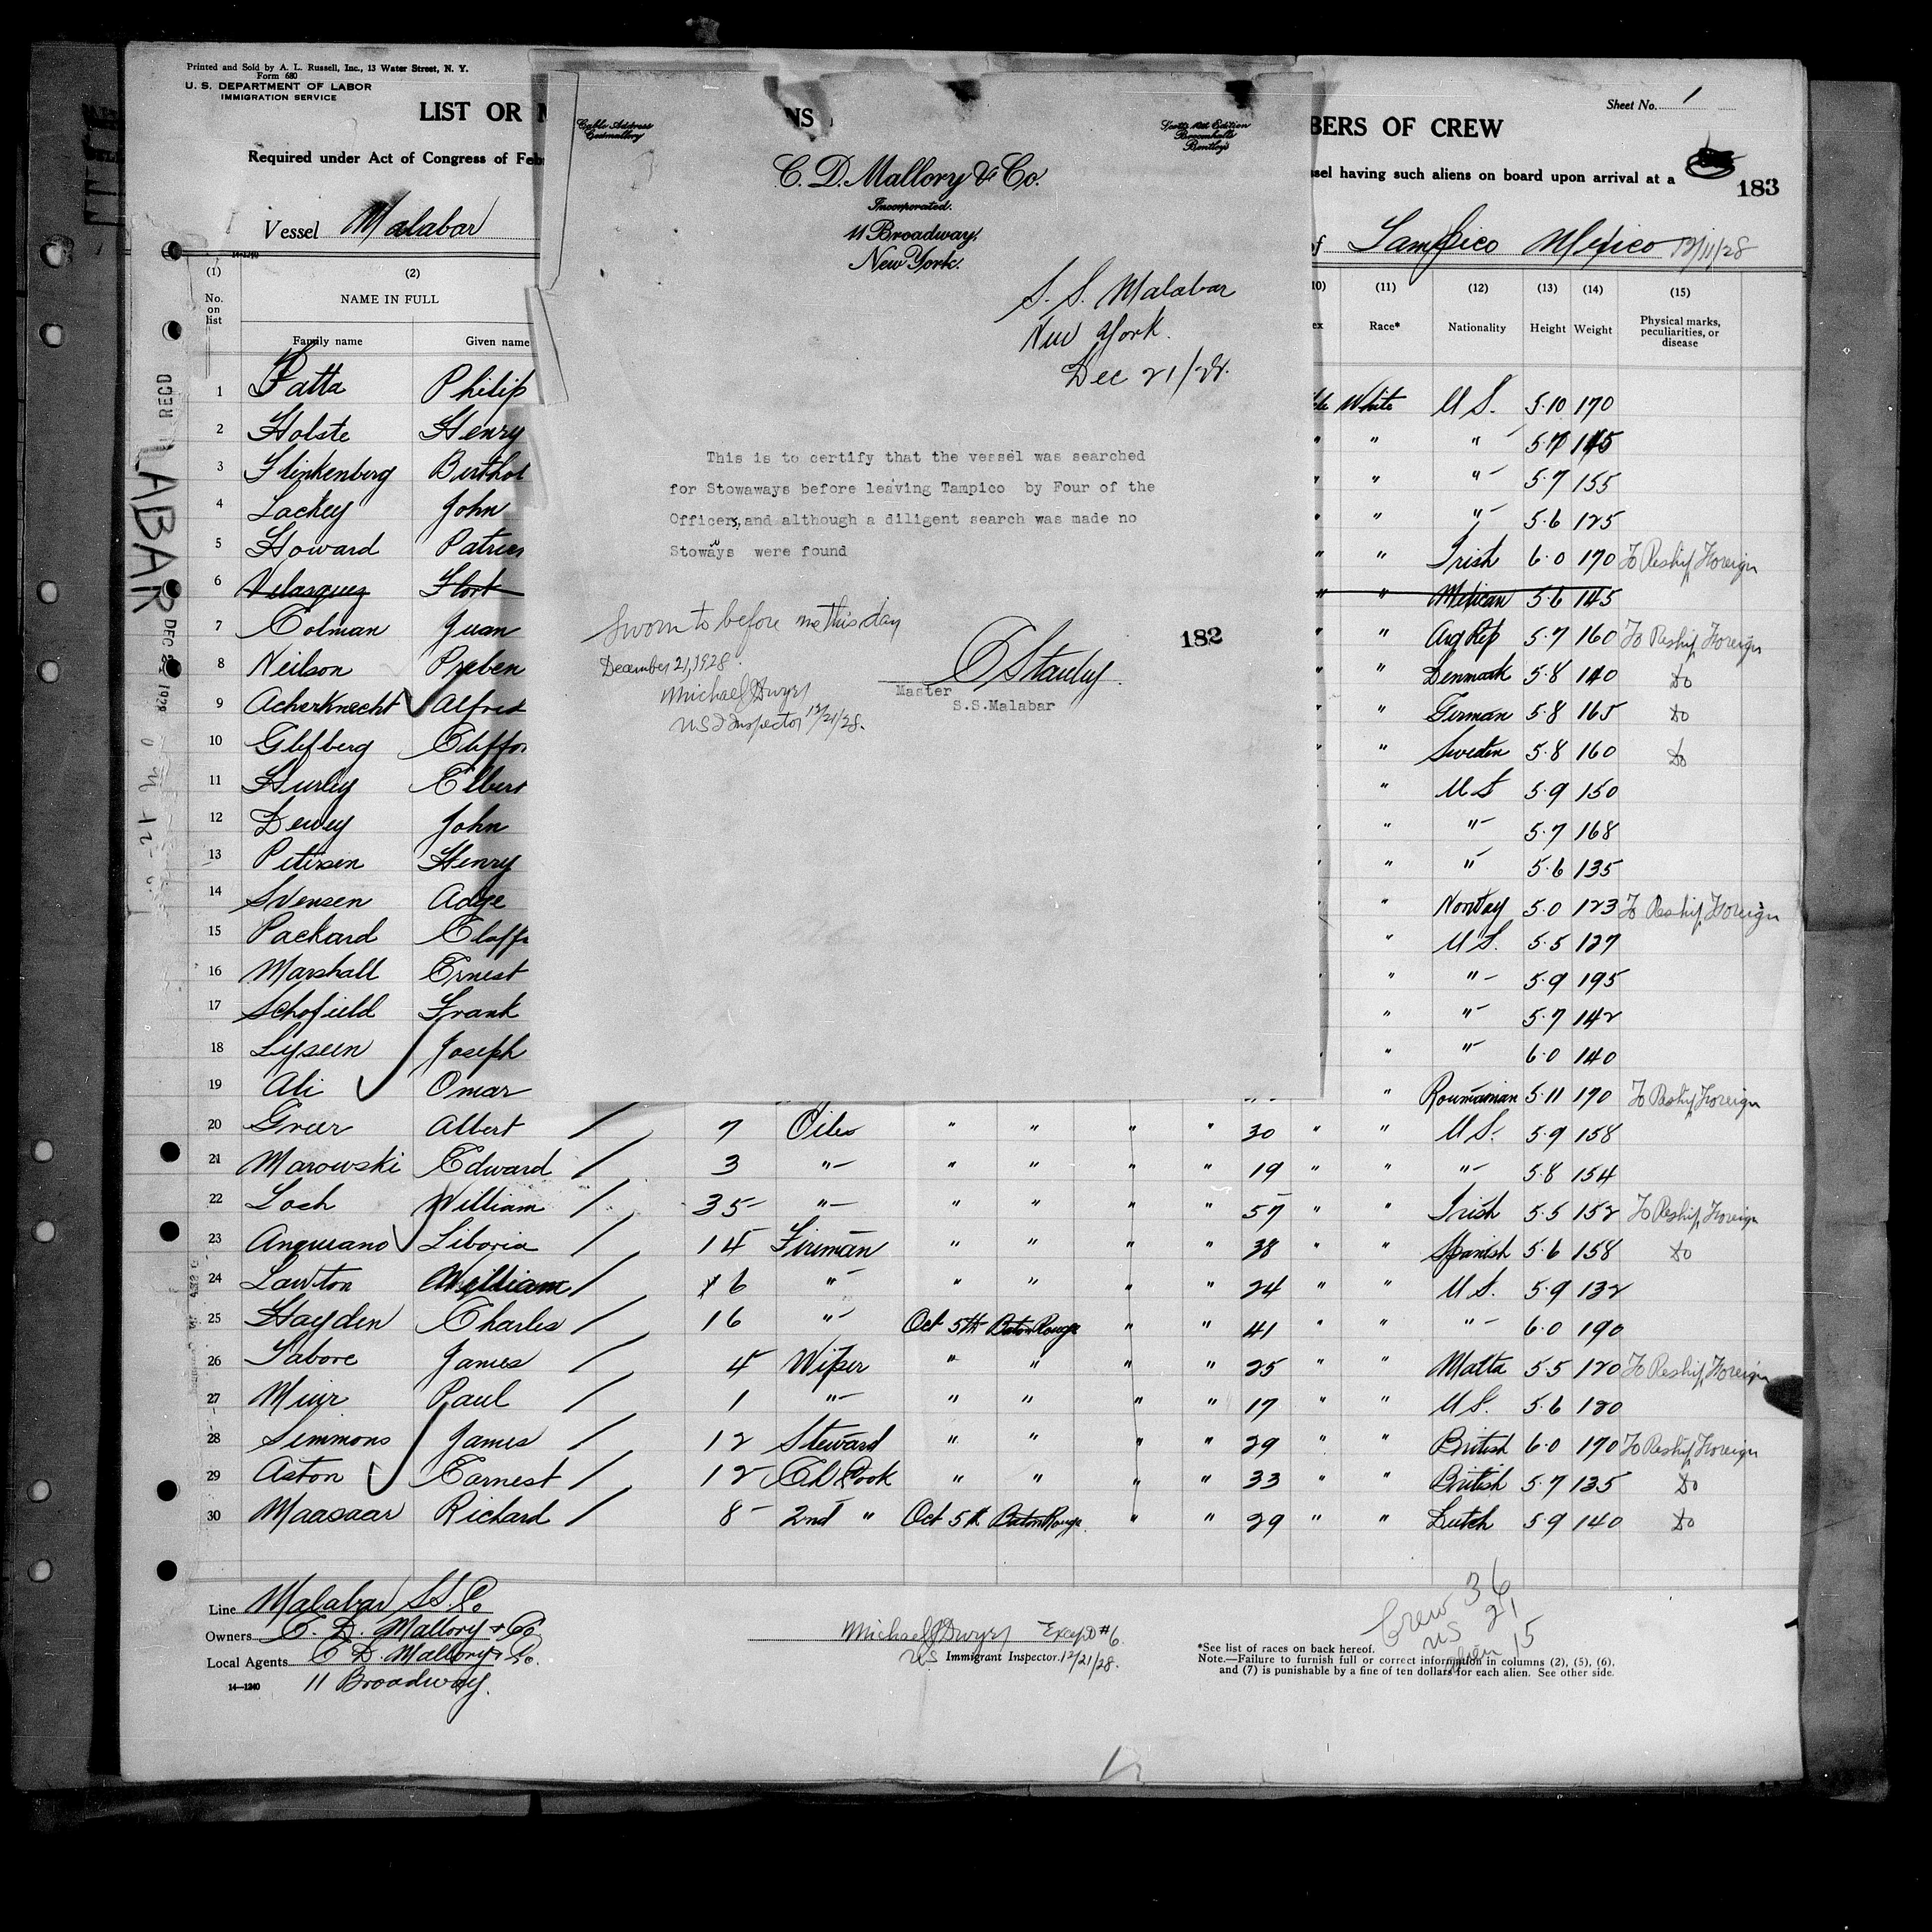 Printed and Sold by A. L. Russell, Inc., 13 Water Street, N. Y.
Form 680
U. S. DEPARTMENT OF LABOR
IMMIGRATION SERVICE
Sheet No. 1
LIST OR
NS
BERS OF CREW
Required under Act of Congress of Feb
sel having such aliens on board upon arrival at a
183
Vessel Malabar
of Tampico Mexico 12/11/28
14-1240
Cable Address
Cedmallory
Scotts 10th Edition
Broomhalls
Bentleys
C. D. Mallory & Co.
Incorporated.
11 Broadway,
New York.
S. S. Malabar
New York.
Dec 21/28.
This is to certify that the vessel was searched
for Stowaways before leaving Tampico by Four of the
Officers, and although a diligent search was made no
Stowaways were found
Sworn to before me this day
December 21, 1928.
Michael J Dwyer
US I Inspector 12/21/28.
182
Stanley
Master
S.S.Malabar
(1) (2) 10) (11) (12) (13) (14) (15)
No. on list NAME IN FULL ex Race* Nationality Height Weight Physical marks, peculiarities, or disease
Family name Given name
1 Patta Philip le White U S. 5·10 170
2 Holste Henry " " "- 5·7 145
3 Flinkenberg Berthol " " "- 5·7 155
4 Lackey John " " "- 5·6 125
5 Howard Patric " " Irish 6·0 170 To Reship Foreign
6 Velasquez Flort " " Mexican 5·6 145
7 Colman Juan " " Arg Rep 5·7 160 To Reship Foreign
8 Neilson Preben " " Denmark 5·8 140 Do
9 Acherknecht Alfred " " German 5·8 165 Do
10 Glefberg Cliffor " Sweden 5·8 160 Do
11 Hurley Elbert " U S 5·9 150
12 Dewey John " "- 5·7 168
13 Petersen Henry " "- 5·6 135
14 Svensen Adge " Norway 5·0 123 To Reship Foreign
15 Packard Claff " U S. 5·5 127
16 Marshall Ernest " "- 5·9 195
17 Schofield Frank " "- 5·7 142
18 Lyseen Joseph " "- 6·0 140
19 Ali Omar " Roumanian 5·11 170 To Reship Foreign
20 Greer Albert / 7 Oiler " " " " 30 " " U S. 5·9 158
21 Marowski Edward / 3 "- " " " " 19 " " "- 5·8 154
22 Loch William / 35 "- " " " " 57 " " Irish 5·5 152 To Reship Foreign
23 Anguiano Liboria / 14 Fireman " " " " 38 " " Spanish 5·6 158 Do
24 Lawton William / 6 "- " " " " 24 " " U S. 5·9 132
25 Hayden Charles / 16 "- Oct 5th Baton Rouge " " 41 " " "- 6·0 190
26 Tabore James / 4 Wiper " " " " 25 " " Malta 5·5 120 To Reship Foreign
27 Muir Paul / 1 "- " " " " 17 " " U S. 5·6 120
28 Simmons James / 12 Steward " " " " 29 " " British 6·0 170 To Reship Foreign
29 Aston Earnest / 12 Cook " " " " 33 " " British 5·7 135 Do
30 Maasaar Richard / 8 2nd " Oct 5th Baton Rouge " " 29 " " Dutch 5·9 140 Do
Line Malabar SS. Co
Owners C. D. Mallory + Co
Local Agents C D. Mallory + Co.
11 Broadway.
14-1240
Michael J Dwyer Except #6.
US Immigrant Inspector. 12/21/28.
Crew 36
US 21
alien 15
*See list of races on back hereof.
Note.—Failure to furnish full or correct information in columns (2), (5), (6),
and (7) is punishable by a fine of ten dollars for each alien. See other side.
LABAR
RECD
DEC 22 1928